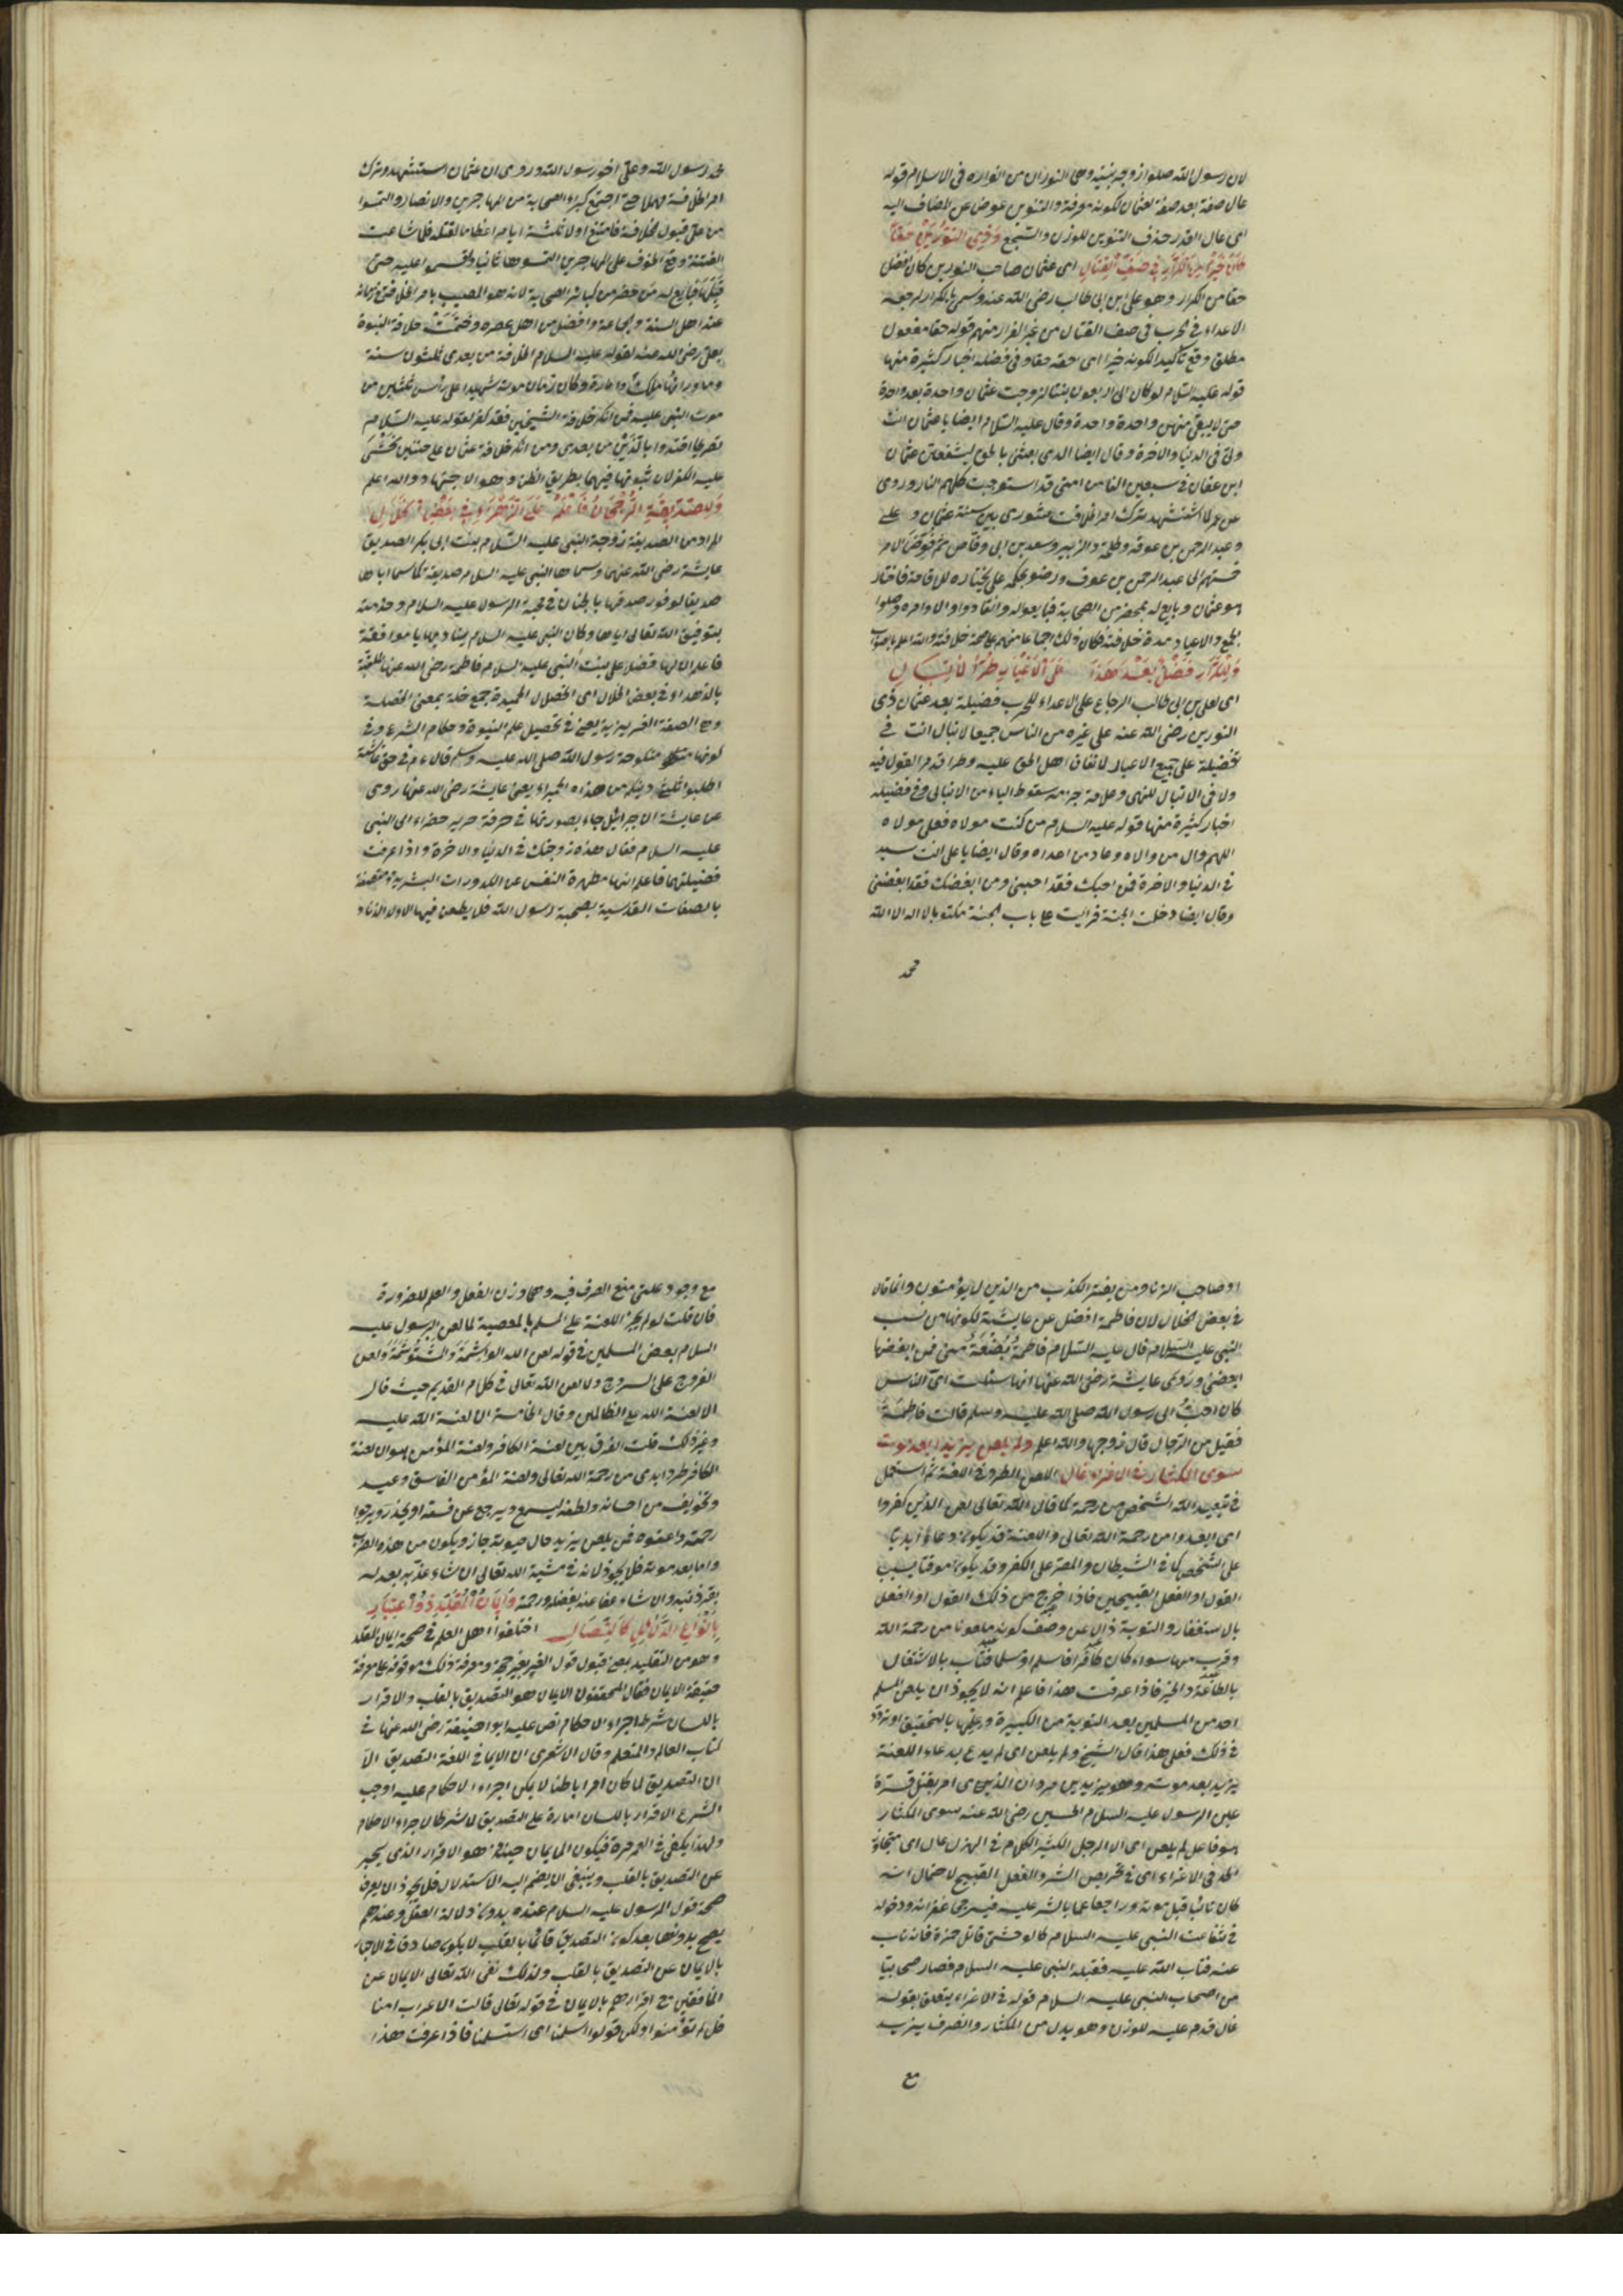 لان رسول الله صلوا زوجه بنتيه وهى النوران من انواره فى الاسلام قوله
عال صفة بعد صفة لعثمان لكونه معرفة والتنوين عوض عن المضاف اليه
اى عال القدر حذف التنوين للوزن والسجع وَذِى النُّورَيْنِ حَقًّا
كَانَ خَيْرًا مِنَ الكَرَّارِ فِى صَفِّ الْقِتَالِ اى عثمان صاحب النورين كان افضل
حقا من الكرار وهو على ابن ابى طالب رضى الله عنه وسمى بالكرار لرجعه
الاعداء فى الحرب فى صف القتال من غير الفرار منهم قوله حقا مفعول
مطلق وقع تأكيدا لكونه خيرا اى حقه حقا وفى فضله اخبار كثيرة منها
قوله عليه السلام لو كان لى اربعون بنتا لزوجت عثمان واحدة بعد واحدة
حتى لا يبقى منهن واحدة واحدة وقال عليه السلام ايضا يا عثمان انت
ولى فى الدنيا والاخرة وقال ايضا الذى بعثنى بالحق ليشفعن عثمان
ابن عفان فى سبعين الفا من امتى قد استوجبت كلهم النار وروى
عن عمر لما استشهد ترك امر الخلافت مشورى بين ستة عثمان و على
وعبد الرحمن بن عوف وطلحة والزبير وسعد بن ابى وقاص ثم فوض الامر
خمستهم الى عبد الرحمن بن عوف ورضو بحكمه على يختاره للاقامة فاختار
هو عثمان وبايع له بمحضر من الصحابة فبايعوا له وانقادوا الاوامره وصلوا
الجمع والاعياد مدة خلافته فكان ذلك اجماعا منهم على صحة خلافته والله اعلم بالصواب
وَلِلْكَرَّارِ فَضْلٌ بَعْدَ هَذَا عَلَى الْاَغْيَارِ طُرًّا لَا تُبَالِ
اى لعلى بن ابى طالب الرجاع على الاعداء للحرب فضيلة بعد عثمان ذى
النورين رضى الله عنه على غيره من الناس جميعا لا تبال انت فى
تفضيلة على جميع الاغيار لاتفاق اهل الحق عليه وطرا قد مر القول فيه
ولا فى لا تبال للنهى وعلامة جزمه سقوط الياء من لا تبالى وفى فضيله
اخبار كثيرة منها قوله عليه السلام من كنت مولاه فعلى مولاه
اللهم وال من والاه وعاد من اعداه وقال ايضا يا على انت سيد
فى الدنيا والاخرة فمن احبك فقد احبنى ومن ابغضك فقد ابغضنى
وقال ايضا دخلت الجنة فرايت على باب الجنة مكتوبا لا اله الا الله
محمد
محمد رسول الله وعلى اخو رسول الله وروى ان عثمان استشهد وترك
امر الخلافة مهملا حتى اجتمع كبراء الصحابة من المهاجرين والانصار والتمسوا
من على قبول الخلافة فامتنع اولا ثلثة ايام اعظاما لقتله فلما شاعت
الفتنة وقع الخوف على المهاجرين التمسوها ثانيا واقسموا عليه حتى
قبلها فبايع له من حضر من كبائر الصحابة لانه هو المصيب بامر الخلافة فى زمانه
عند اهل السنة والجماعة وافضل من اهل عصره وختمت خلافة النبوة
بعلى رضى الله عنه لقوله عليه السلام الخلافة من بعدى ثلثون سنة
وما ورائها ملك وامارة وكان زمان موته شهيدا على رأس ثلثين من
موت النبى عليه فمن انكر خلافة الشيخين فقد كفر لقوله عليه السلام
تصريحا اقتدوا بالذين من بعدى ومن انكر خلافة عثمان على ختنين يخشى
عليه الكفر لان ثبوتها فيهما بطريق الظن وهو الاجتهاد والله اعلم
وَلِلصِّدِّيقَةِ الرُّجْحَانُ فَاعْلَمْ عَلَى الزَّهْرَاءِ فِى بَعْضِ الْخِلَالِ
المراد من الصديقة زوجة النبى عليه السلام بنت ابى بكر الصديق
عايشة رضى الله عنهما وسماها النبى عليه السلام صديقة كما سما اباها
صديقا لوفور صدقها بالجنان فى محبة الرسول عليه السلام وخدمته
بتوفيق الله تعالى اياها وكان النبى عليه السلام يناديها يا موافقة
فاعلم ان لها فضل على بنت النبى عليه السلام فاطمة رضى الله عنها الملقبة
بالزهراء فى بعض الخلال اى الخصلال الحميدة جمع خلة بمعنى الخصلة
وهى الصفة الغريزية يعنى فى تحصيل علم النبوة وحكام الشرع وفى
كونها منكوحة رسول الله صلى الله عليه وسلم قال ء م فى حق عائشة
اطلبوا ثلثى دينكم من هذه الحميراء يعنى عايشة رضى الله عنها روى
عن عايشة ان جبرائيل جاء بصورتها فى خرقة حرير خضراء الى النبى
عليه السلام فقال هذه زوجتك فى الدنيا والاخرة واذا عرفت
فضيلتهما فاعلم انها مطهرة النفس عن الكدورات البشرية ومتصفة
بالصفات القدسية بصحبة رسول الله فلا يطعن فيها الا ولد الزناء
او صاحب الزنا ومن يفتر الكذب من الذين لا يؤمنون وانما قال
فى بعض الخلال لان فاطمة افضل عن عايشة لكونها من نسب
النبى عليه السلام قال عليه السلام فاطمة بُضْعَةٌ منى فمن ابغضها
ابغضنى وروى عايشة رضى الله عنها انها سئلت اى الناس
كان احبُّ الى رسول الله صلى الله عليه وسلم قالت فاطمةُ
فقيل من الرجال قال زوجها والله اعلم ولم يلعن يزيدا بعد موت
سوى المكثار فى الاغراء غال اللعن الطرد فى اللغة ثم استعمل
فى تبعيد الله الشخص من رحمة كما قال الله تعالى لعن الذين كفروا
اى ابعدوا من رحمة الله تعالى واللعنة قد يكون دعاء ابديا
على الشخص كما فى الشيطان والمصر على الكفر وقد يكون موقتا بسبب
القول او الفعل القبيحين فاذا خرج من ذلك القول او الفعل
بالاستغفار والتوبة زال عن وصف كونه ملعونا من رحمة الله
وقرب منها سواء كان كافرا فاسلم او مسلما فتاب بالاشتغال
بالطاعة والخير فاذا عرفت هذا فاعلم انه لا يجوز ان يلعن المسلم
احد من المسلمين بعد التوبة من الكبيرة وغيرها بالتحقيق او تردد
فى ذلك فعلى هذا قال الشيخ ولم يلعن اى لم يدع بدعاء اللعنة
يزيد بعد موته وهو يزيد بن مروان الذى امر بقتل قرة
عين الرسول عليه السلام الحسين رضى الله عنه سوى المكثار
هو فاعل لم يلعن اى الا الرجل الكثير الكلام فى الهزل غال اى متجاوز
الحد فى الاغراء اى فى تحريص الشر والفعل القبيح لاحتمال انه
كان تائبا قبل موته وراجعا عما بالشر عليه فيرجى غفرانه ودخوله
فى شفاعت النبى عليه السلام كالوحشى قاتل حمزة فانه تاب
عنه فتاب الله عليه فقبله النبى عليه السلام فصار صحابيا
من اصحاب النبى عليه السلام قوله فى الاغراء يتعلق بقوله
غال قدم عليه للوزن وهو بدل من المكثار وانصرف يزيد
مع
مع وجود علتى منع الصرف فيه وهما وزن الفعل والعلم للضرورة
فان قلت لو لم يجز اللعنة على المسلم بالمعصية لما لعن الرسول عليه
السلام بعض المسلمين فى قوله لعن الله الواشمة والمستوشمة ولعن
الفروج على السروج ولا لعن الله تعالى فى كلام القديم حيث قال
الا لعنة الله على الظالمين وقال الخامسة ان لعنة الله عليه
وغير ذلك قلت الفرق بين لعنة الكافر ولعنة المؤمن هو ان لعنة
الكافر طرد ابدى من رحمة الله تعالى ولعنة المؤمن الفاسق وعيد
وتخويف من احسانه ولطفه ليسمع ويرجع عن فسقه او يحذر ويرجوا
رحمته واعفوه فمن يلعن يزيد حال حيوته جاز ويكون من هذه الضرب
واما بعد موته فلا يجوز لانه فى مشية الله تعالى ان شاء عذبه بعدله
بقدر ذنبه وان شاء عفا عنه بفضله ورحمته وَاِيمَانُ الْمُقَلِّدِ ذُو اعْتِبَارٍ
بِاَنْوَاعِ الدَّلَائِلِ كَالنِّصَالِ اختلفوا اهل العلم فى صحة ايمان المقلد
وهو من التقليد بمعنى قبول قول الغير بغير حجة ومعرفة ذلك موقوفة على معرفة
حقيقة الايمان فقال المحققون الايمان هو التصديق بالقلب والاقرار
باللسان شرط اجراء الاحكام نص عليه ابو حنيفة رضى الله عنها فى
كتاب العالم والمتعلم وقال الاشعرى ان الايما فى اللغة التصديق الا
ان التصديق لما كان امرا باطنا لا يمكن اجراء الاحكام عليه اوجب
الشرع الاقرار باللسان امارة على التصديق لا شرطا لاجراء الاحكام
ولهذا يكفى فى العمر مرة فيكون الايمان حينئذ هو الاقرار الذى يخبر
عن التصديق بالقلب وينبغى ان يضم اليه الاستدلال فلا يجوز ان يعرف
صحة قول الرسول عليه السلام عنده بدون دلالة العقل وعندهم
يصح بدونها بعد كون التصديق قائما بالقلب لا يكون صادقا فى الاخبار
بالايمان عن التصديق بالقلب ولذلك نفى الله تعالى الايمان عن
المنافقين مع اقرارهم بالايمان فى قوله تعالى قالت الاعراب امنا
قل لم تؤمنوا ولكن قولوا اسلمنا اى استسلمنا فاذا عرفت هذا